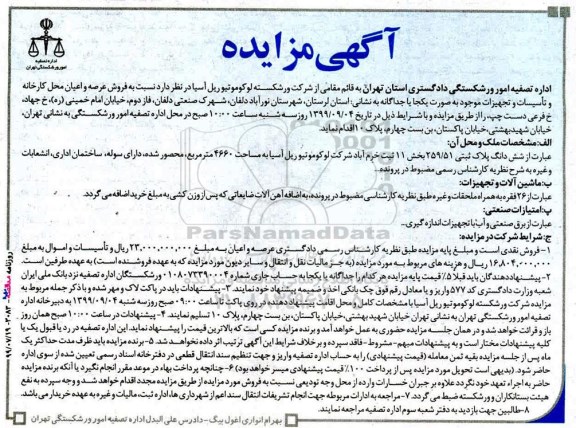 آگهی مزایده
اداره تصفیه
امور ورشکستگی تهران
اداره تصفیه امور ورشکستگی دادگستری استان تهران به قائم مقامی از شرکت ورشکسته لوکوموتیو ریل آسیا در نظر دارد نسبت به فروش عرصه و اعیان محل کارخانه
و تأسیسات و تجهیزات موجود به صورت یکجا یا جداگانه به نشانی: استان لرستان، شهرستان نورآباد دلفان، شهرک صنعتی دلفان، فاز دوم، خیابان امام خمینی (ره)، خ جهاد،
خ فرعی دست چپ، را از طریق مزایده و با شرایط ذیل در تاریخ ۱۳۹۹/۰۹/۰۴ روز سه شنبه ساعت ۱۰:۰۰ صبح در محل اداره تصفیه امور ورشکستگی به نشانی تهران،
خیابان شهید بهشتی، خیابان پاکستان، بن بست چهارم، پلاک ۱۰ اقدام نماید.
الف: مشخصات ملک و محل آن:
عبارت از شش دانگ پلاک ثبتی ۲۵۹/۵۱ بخش ۱۱ ثبت خرم آباد شرکت لوکوموتیو ریل آسیا به مساحت ۴۶۶۰ متر مربع، محصور شده، دارای سوله، ساختمان اداری، انشعابات
و غیره به شرح نظریه کارشناس رسمی مضبوط در پرونده..
ب: ماشین آلات و تجهیزات:
عبارت از ۲۶ فقره به همراه ملحقات و غیره طبق نظریه کارشناسی مضبوط در پرونده، به اضافه آهن آلات ضایعاتی که پس از وزن کشی به مبلغ خرید اضافه می گردد.
پ: امتیازات صنعتی:
عبارت از برق صنعتی و آب با تجهیزات اندازه گیری..
ج: شرایط شرکت در مزایده:
۱- فروش نقدی است و مبلغ پایه مزایده طبق نظریه کارشناس رسمی دادگستری عرصه و اعیان به مبلغ ۲۳,۰۰۰,۰۰۰,۰۰۰ ریال و تأسیسات و اموال به مبلغ
۱۶,۸۰۴,۰۰۰,۰۰۰ ریال و هزینه های مربوط به مورد مزایده (به جز مالیات نقل و انتقال و سایر دیون مورد مزایده که به عهده فروشنده است) به عهده طرفین است.
۲- پیشنهاددهندگان باید قبلا ۵٪ قیمت پایه مزایده هر کدام را جداگانه یا یکجا به حساب جاری شماره ۰۱۰۸۰۷۳۳۹۰۰۴ ورشکستگان اداره تصفیه نزد بانک ملی ایران
شعبه وزارت دادگستری کد ۵۷۷ واریز و یا معادل رقم فوق چک بانکی اخذ و ضمیمه پیشنهاد خود نمایند. ۳- پیشنهادات باید در پاکت لاک و مهر شده و با ذکر جمله مربوط به
مزایده شرکت ورشکسته لوکوموتیو ریل آسیا با مشخصات کامل و محل اقامت پیشنهاددهنده بر روی پاکت تا ساعت ۰۹:۰۰ صبح روز سه شنبه ۱۳۹۹/۰۹/۰۴ به دبیرخانه اداره
تصفیه امور ورشکستگی تهران به نشانی تهران خیابان شهید بهشتی، خیابان پاکستان، بن بست چهارم، پلاک ۱۰ تسلیم نمایند. ۴- پیشنهادات در ساعت ۱۰:۰۰ صبح همان روز
باز و قرائت خواهد شد و در همان جلسه مزایده حضوری به عمل خواهد آمد و برنده مزایده کسی است که بالاترین قیمت را پیشنهاد نماید. این اداره تصفیه در رد یا قبول یک یا
کلیه پیشنهادات مختار است و به پیشنهادات مبهم- مشروط- فاقد سپرده و برخلاف شرایط این آگهی ترتیب اثر داده نخواهد شد. ۵- برنده مزایده باید ظرف مدت حداکثر یک
ماه پس از جلسه مزایده بقیه ثمن معامله (قیمت پیشنهادی) را به حساب اداره تصفیه واریز و جهت تنظیم سند انتقال قطعی در دفترخانه اسناد رسمی تعیین شده از سوی اداره
حاضر شود. (بدیهی است تحویل مورد مزایده پس از پرداخت ۱۰۰٪ قیمت پیشنهادی میسر خواهد بود) ۶- چنانچه پرداخت بهاء در موعد مقرر انجام نگیرد یا آنکه برنده مزایده
حاضر به اجراء تعهد خود نگردد علاوه بر جبران خسارات وارده از محل وجه تودیعی نسبت به فروش مورد مزایده از طریق مزایده مجدد اقدام خواهد شد و وجه سپرده به نفع
هیئت بستانکاران و ورشکسته ضبط می گردد. ۷- مراجعه به ادارات مربوطه جهت انجام تشریفات انتقال سند اعم از شهرداری ها، اداره ثبت، مالیات و غیره به عهده خریدار می باشد.
۸- طالبین جهت بازدید به دفتر شعبه سوم اداره تصفیه مراجعه نمایند.
بهرام انواری اغول بیگ - دادرس علی البدل اداره تصفیه امور ورشکستگی تهران
ParsNamadData